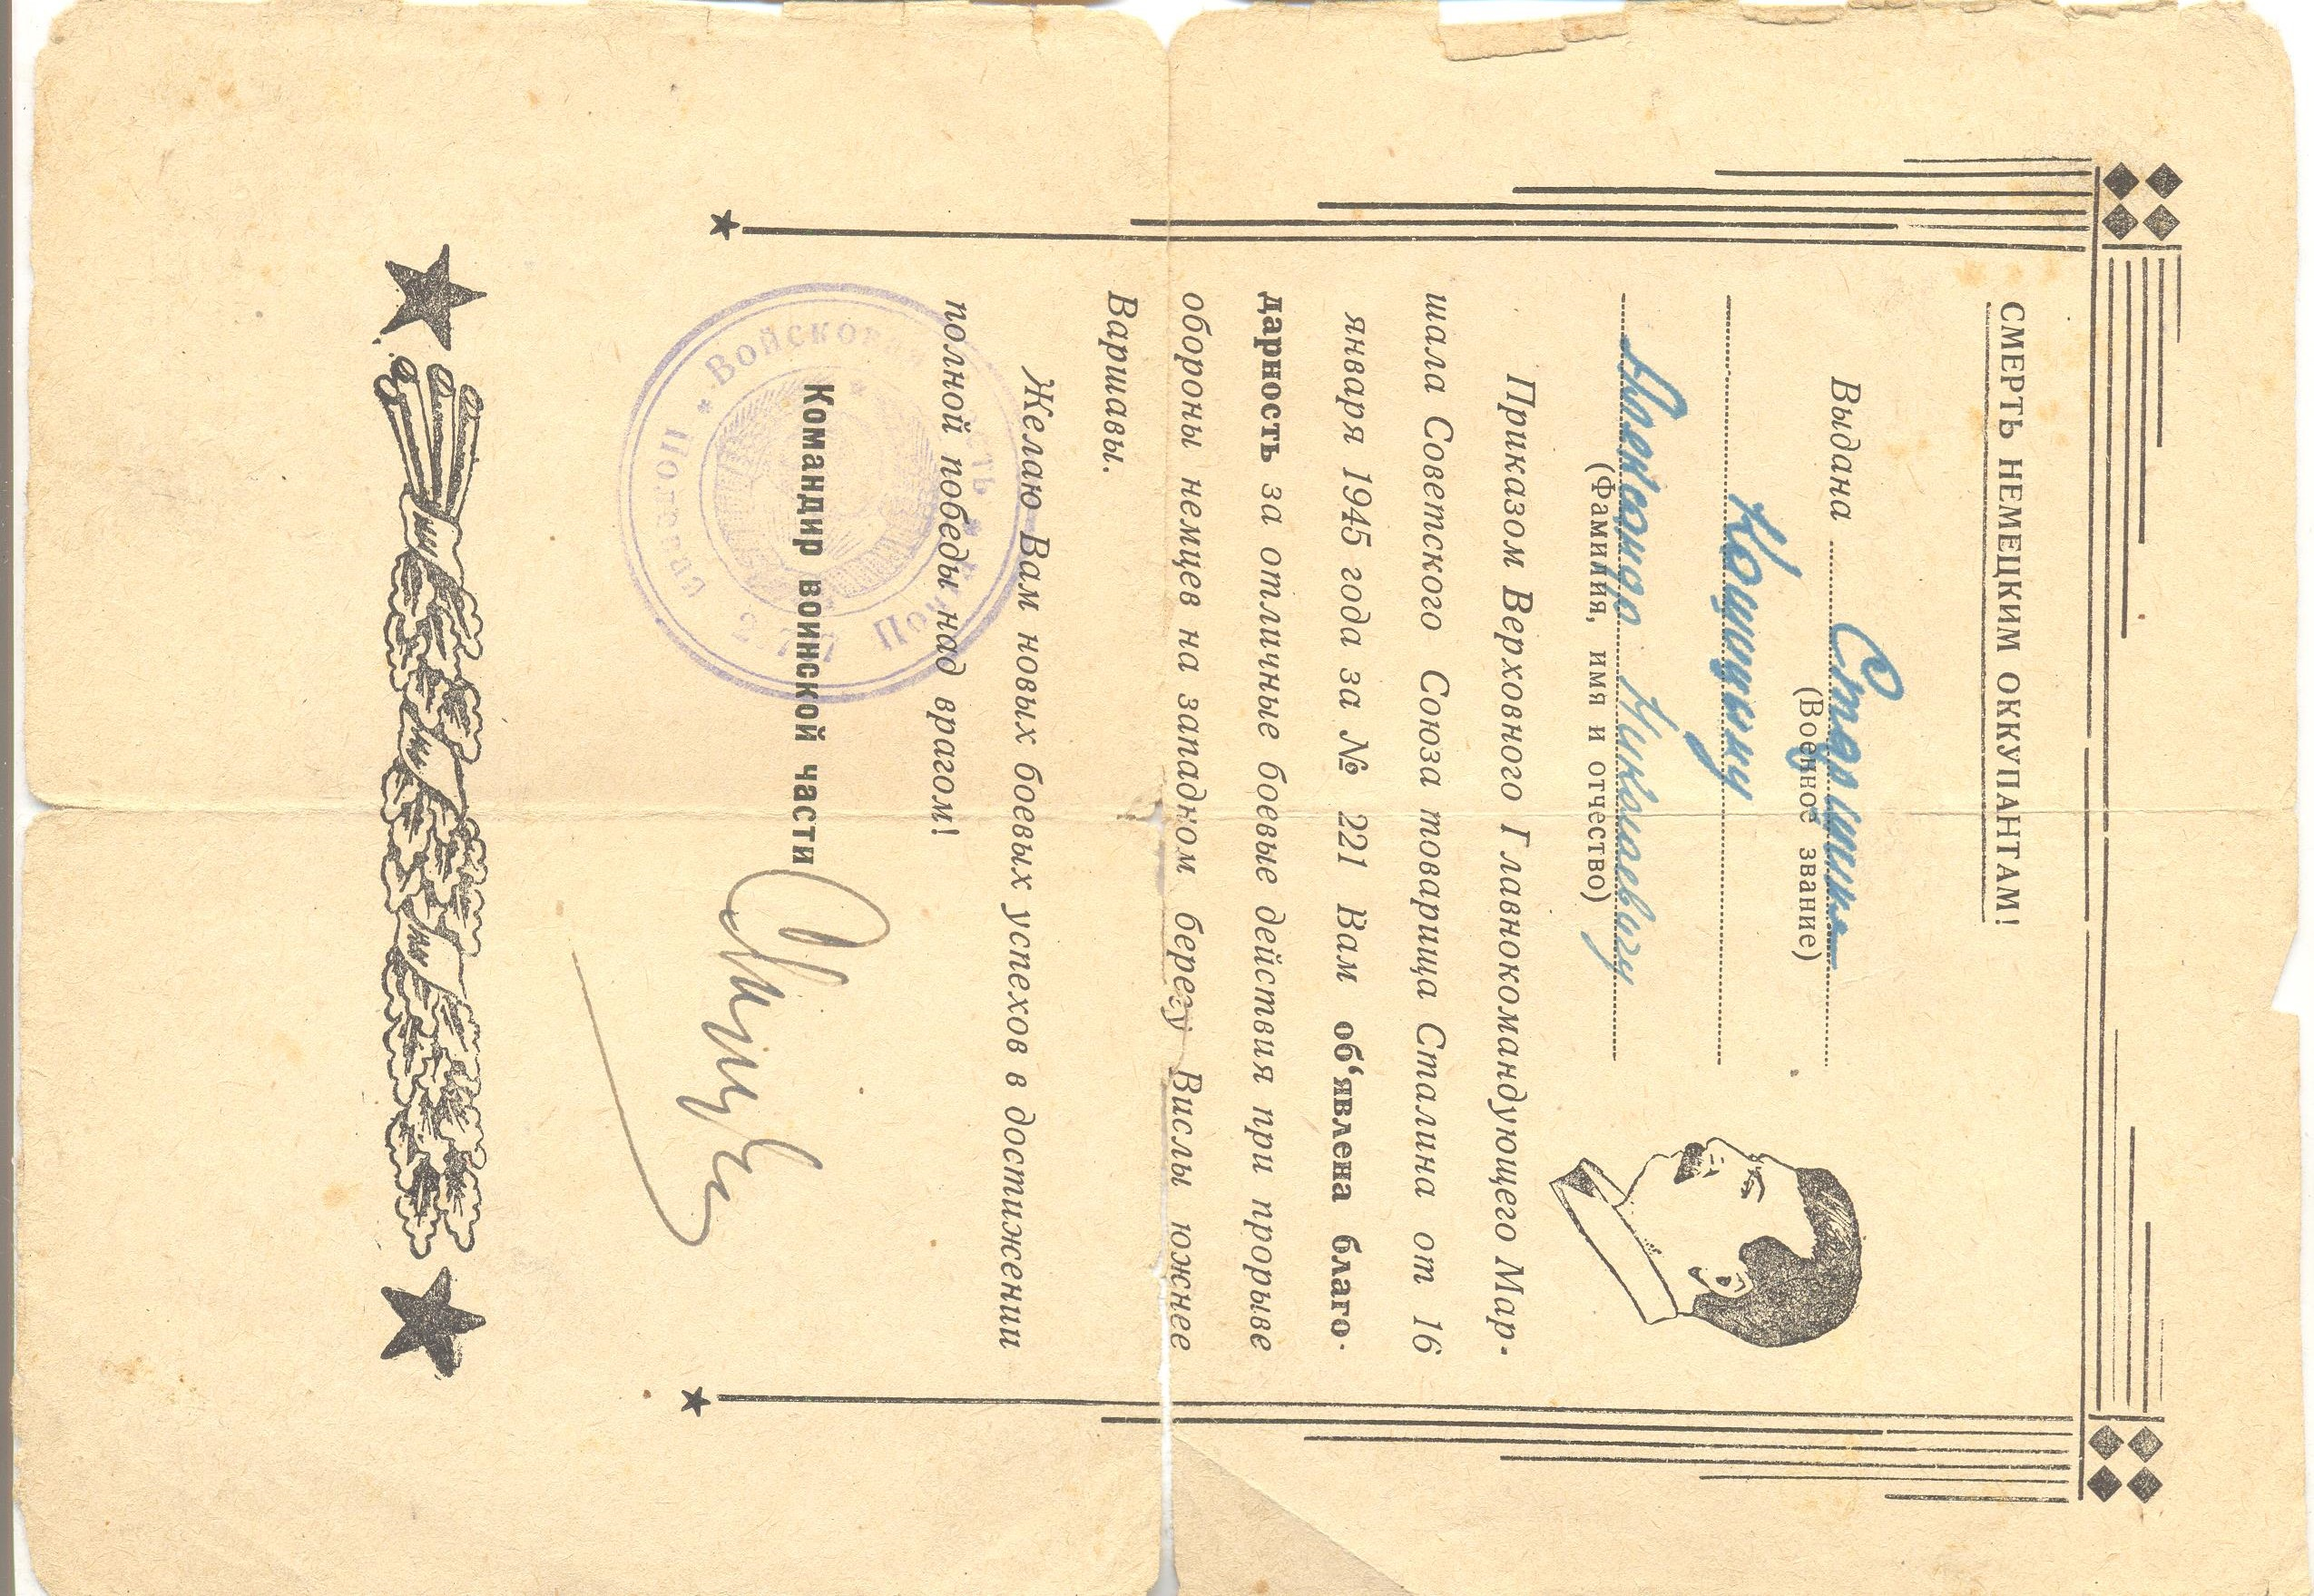 СМЕРТЬ НЕМЕЦКИМ ОККУПАНТАМ!
Выдана Старшине
(Военное звание)
Александр Николаевичу
(Фамилия, имя и отчество)
Приказом Верховного Главнокомандующего Мар-
шала Советского Союза товарища Сталина от 16
января 1945 года за № 221 Вам об'явлена благо-
дарность за отличные боевые действия при прорыве
обороны немцев на западном берегу Вислы южнее
Варшавы.
Желаю Вам новых боевых успехов в достижении
полной победы над врагом!
Командир воинской части
Войсковая часть Полевая Почта